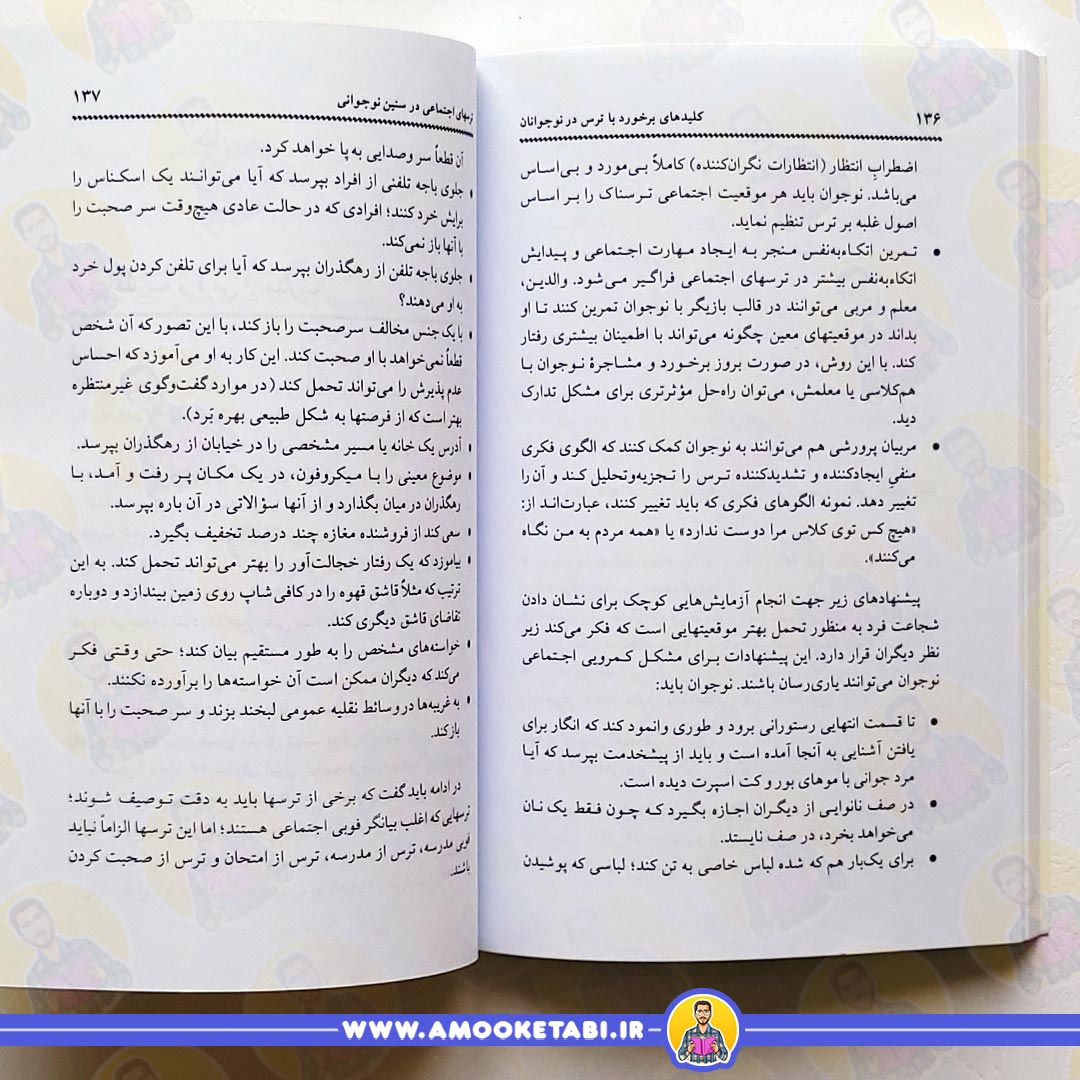 ۱۳۶ کلیدهای برخورد با ترس در نوجوانان
اضطرابِ انتظار (انتظارات نگران‌کننده) کاملاً بی‌مورد و بی‌اساس
می‌باشد. نوجوان باید هر موقعیت اجتماعی ترسناک را بر اساس
اصول غلبه بر ترس تنظیم نماید.
• تمرین اتکاءبه‌نفس منجر به ایجاد مهارت اجتماعی و پیدایش
اتکاءبه‌نفس بیشتر در ترسهای اجتماعی فراگیر می‌شود. والدین،
معلم و مربی می‌توانند در قالب بازیگر با نوجوان تمرین کنند تا او
بداند در موقعیتهای معین چگونه می‌تواند با اطمینان بیشتری رفتار
کند. با این روش، در صورت بروز برخورد و مشاجرهٔ نوجوان با
هم‌کلاسی یا معلمش، می‌توان راه‌حل مؤثرتری برای مشکل تدارک
دید.
• مربیان پرورشی هم می‌توانند به نوجوان کمک کنند که الگوی فکری
منفیِ ایجادکننده و تشدیدکننده ترس را تجزیه‌وتحلیل کند و آن را
تغییر دهد. نمونه الگوهای فکری که باید تغییر کنند، عبارت‌اند از:
«هیچ کس توی کلاس مرا دوست ندارد» یا «همه مردم به من نگاه
می‌کنند».
پیشنهادهای زیر جهت انجام آزمایش‌هایی کوچک برای نشان دادن
شجاعت فرد به منظور تحمل بهتر موقعیتهایی است که فکر می‌کند زیر
نظر دیگران قرار دارد. این پیشنهادات برای مشکل کمرویی اجتماعی
نوجوان می‌توانند یاری‌رسان باشند. نوجوان باید:
• تا قسمت انتهایی رستورانی برود و طوری وانمود کند که انگار برای
یافتن آشنایی به آنجا آمده است و باید از پیشخدمت بپرسد که آیا
مرد جوانی با موهای بور و کت اسپرت دیده است.
• در صف نانوایی از دیگران اجازه بگیرد که چون فقط یک نان
می‌خواهد بخرد، در صف نایستد.
• برای یک‌بار هم که شده لباس خاصی به تن کند؛ لباسی که پوشیدن
ترسهای اجتماعی در سنین نوجوانی ۱۳۷
آن قطعاً سر وصدایی به پا خواهد کرد.
• جلوی باجه تلفنی از افراد بپرسد که آیا می‌توانند یک اسکناس را
برایش خرد کنند؛ افرادی که در حالت عادی هیچ‌وقت سر صحبت را
با آنها باز نمی‌کند.
• جلوی باجه تلفن از رهگذران بپرسد که آیا برای تلفن کردن پول خرد
به او می‌دهند؟
• با یک جنس مخالف سرصحبت را باز کند، با این تصور که آن شخص
قطعاً نمی‌خواهد با او صحبت کند. این کار به او می‌آموزد که احساس
عدم پذیرش را می‌تواند تحمل کند (در موارد گفت‌وگوی غیرمنتظره
بهتر است که از فرصتها به شکل طبیعی بهره بَرد).
• آدرس یک خانه یا مسیر مشخصی را در خیابان از رهگذر بپرسد.
• موضوع معینی را با میکروفون، در یک مکان پر رفت و آمد، با
رهگذران در میان بگذارد و از آنها سؤالاتی در آن باره بپرسد.
• سعی کند از فروشنده مغازه چند درصد تخفیف بگیرد.
• بیاموزد که یک رفتار خجالت‌آور را بهتر می‌تواند تحمل کند. به این
ترتیب که مثلاً قاشق قهوه را در کافی‌شاپ روی زمین بیندازد و دوباره
تقاضای قاشق دیگری کند.
• خواسته‌های مشخص را به طور مستقیم بیان کند؛ حتی وقتی فکر
می‌کند که دیگران ممکن است آن خواسته‌ها را برآورده نکنند.
• به غریبه‌ها در وسائط نقلیه عمومی لبخند بزند و سر صحبت را با آنها
باز کند.
در ادامه باید گفت که برخی از ترسها باید به دقت توصیف شوند؛
ترسهایی که اغلب بیانگر فوبی اجتماعی هستند؛ اما این ترسها الزاماً نباید
فوبی مدرسه، ترس از مدرسه، ترس از امتحان و ترس از صحبت کردن
باشند.
WWW.AMOOKETABI.IR